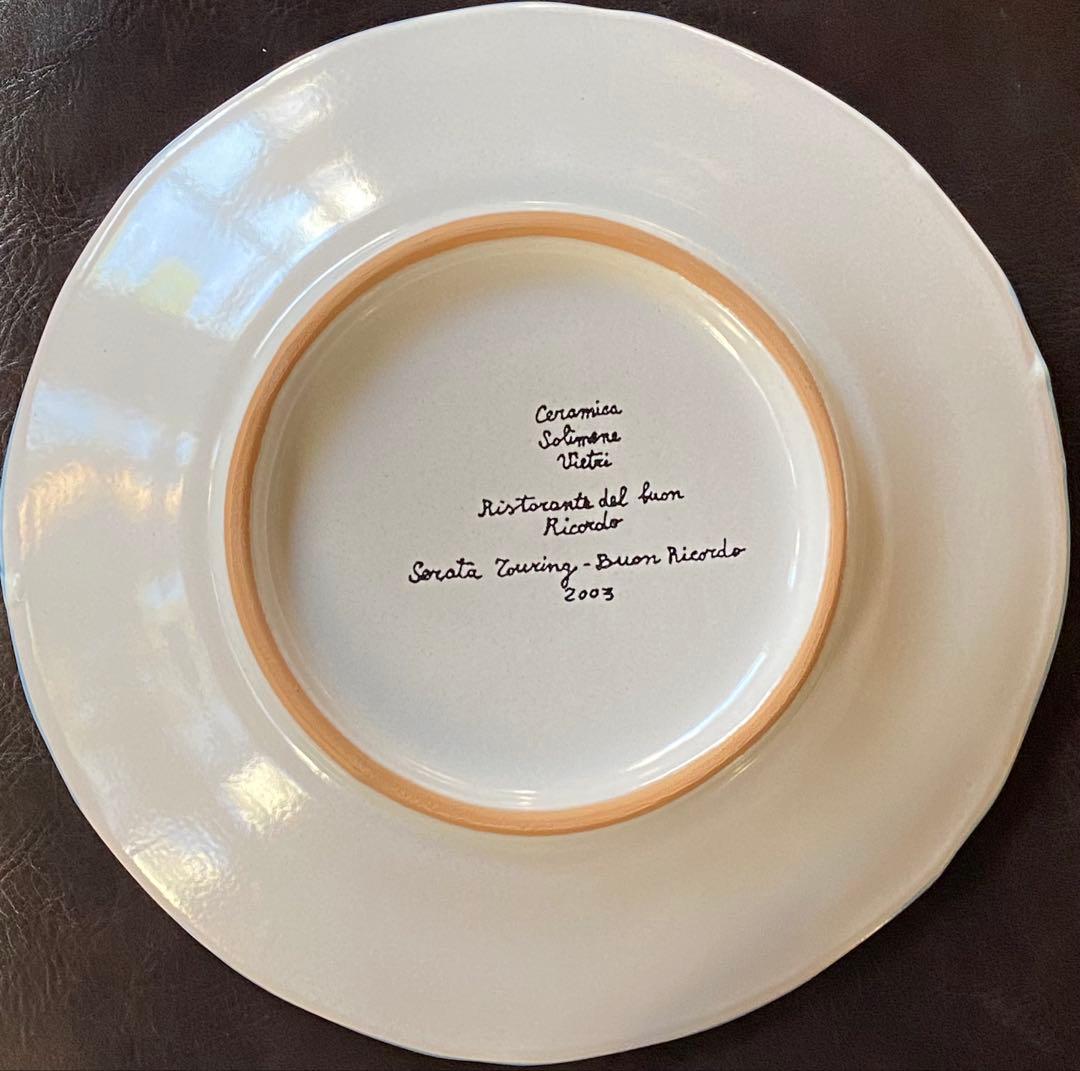 Ceramica
Solimene
Vietri
Ristorante del buon
Ricordo
Serata Touring - Buon Ricordo
2003